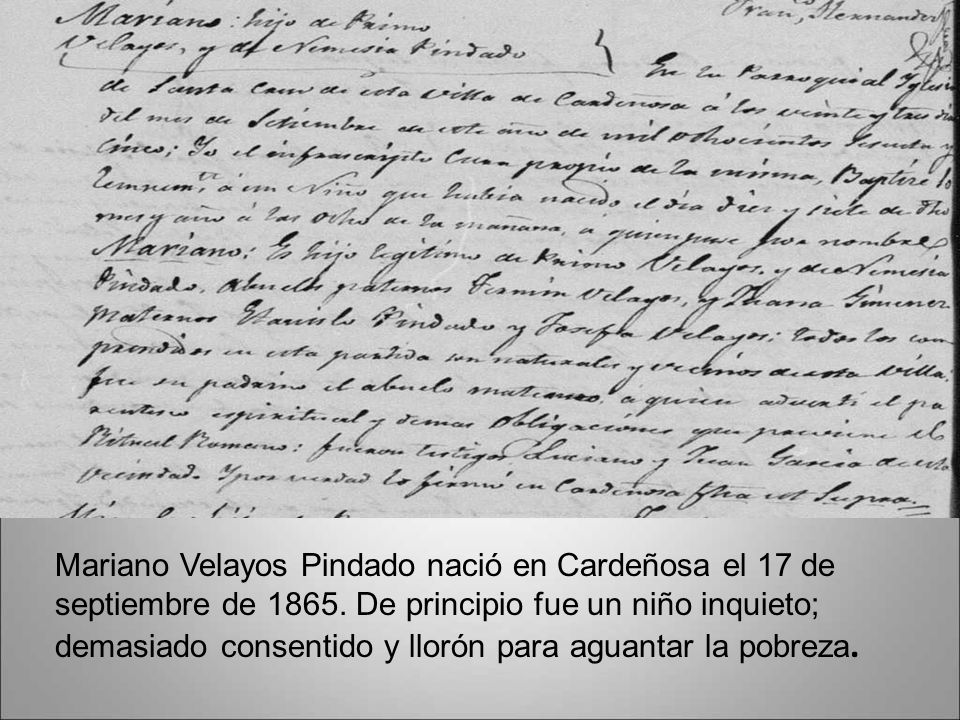 Mariano: hijo de Primo
Velayos, y de Nemesia Pindado
Fran.co Hernandez
En la Parroquial Yglesia
de Santa Cruz de esta villa de Cardeñosa á los veinte y tres dias
del mes de Setiembre de este año de mil ochocientos sesenta y
cinco; Yo el infrascripto Cura propio de la misma, Baptizé so
lemnem.te á un Niño que habia nacido el dia diez y siete de dho
mes y año á las ocho de la mañana, á quien puse por nombre
Mariano: Es hijo legitimo de Primo Velayos, y de Nemesia
Pindado, Abuelos paternos Fermin Velayos, y Juana Gimenez
Maternos Estanislo Pindado y Josefa Velayos: todos los com
prendidos en esta partida son naturales y vecinos de esta villa,
fue su padrino el abuelo materno, á quien advertí el pa
rentesco espiritual y demas obligaciones que previene el
Ritual Romano: fueron testigos Luciano y Juan Garcia de esta
vecindad. Y por verdad lo firmo en Cardeñosa fha ut Supra.
Mariano Velayos Pindado nació en Cardeñosa el 17 de
septiembre de 1865. De principio fue un niño inquieto;
demasiado consentido y llorón para aguantar la pobreza.